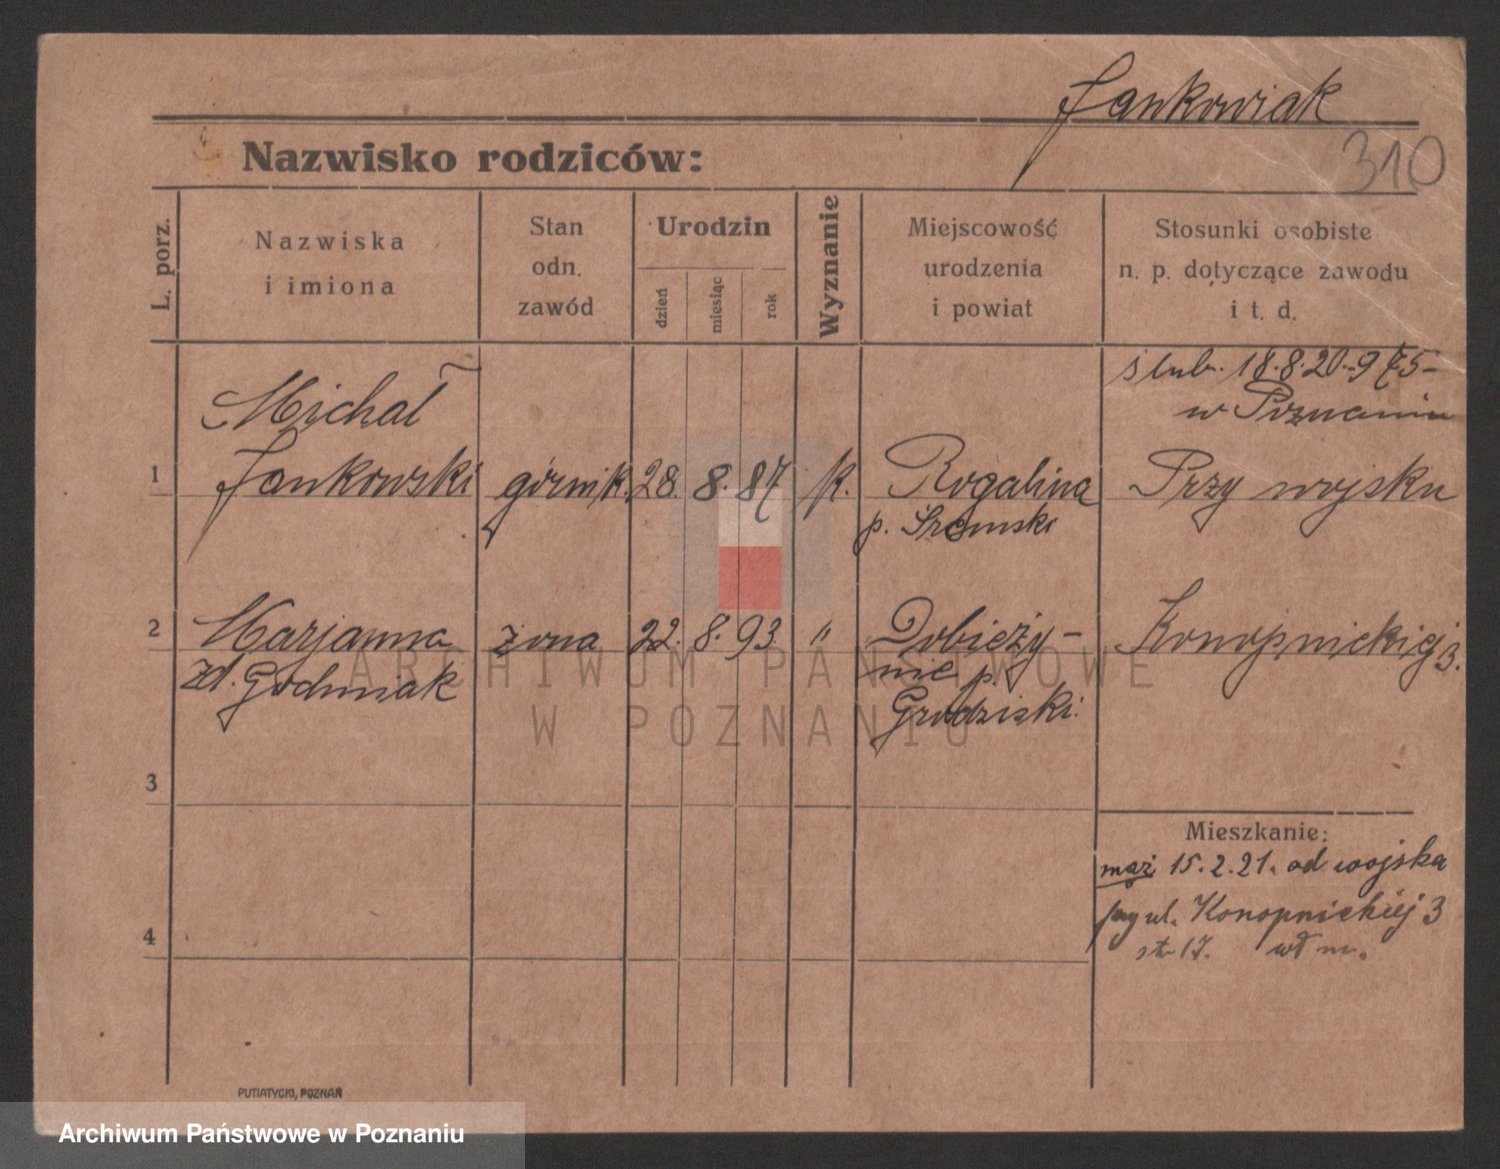 Jankowiak
310
Nazwisko rodziców:
L. porz.
Nazwiska
i imiona
Stan
odn.
zawód
Urodzin
dzień
miesiąc
rok
Wyznanie
Miejscowość
urodzenia
i powiat
Stosunki osobiste
n. p. dotyczące zawodu
i t. d.
ślub. 18.8.20.-975-
w Poznaniu
Michał
1 Jankowski górnik. 28. 8. 87 k. Rogalina Przy wojsku
p. Śremski
2 Marjanna żona 22. 8. 93 " Dobieży- Konopnickiej 3.
zd. Godniak nie p.
Grodziski.
3
Mieszkanie:
mąż 15.2.21. od wojska
ul. Konopnickiej 3
4
17. wł m.
PUTIATYCKI, POZNAŃ
ARCHIWUM PAŃSTWOWE
W POZNANIU
Archiwum Państwowe w Poznaniu